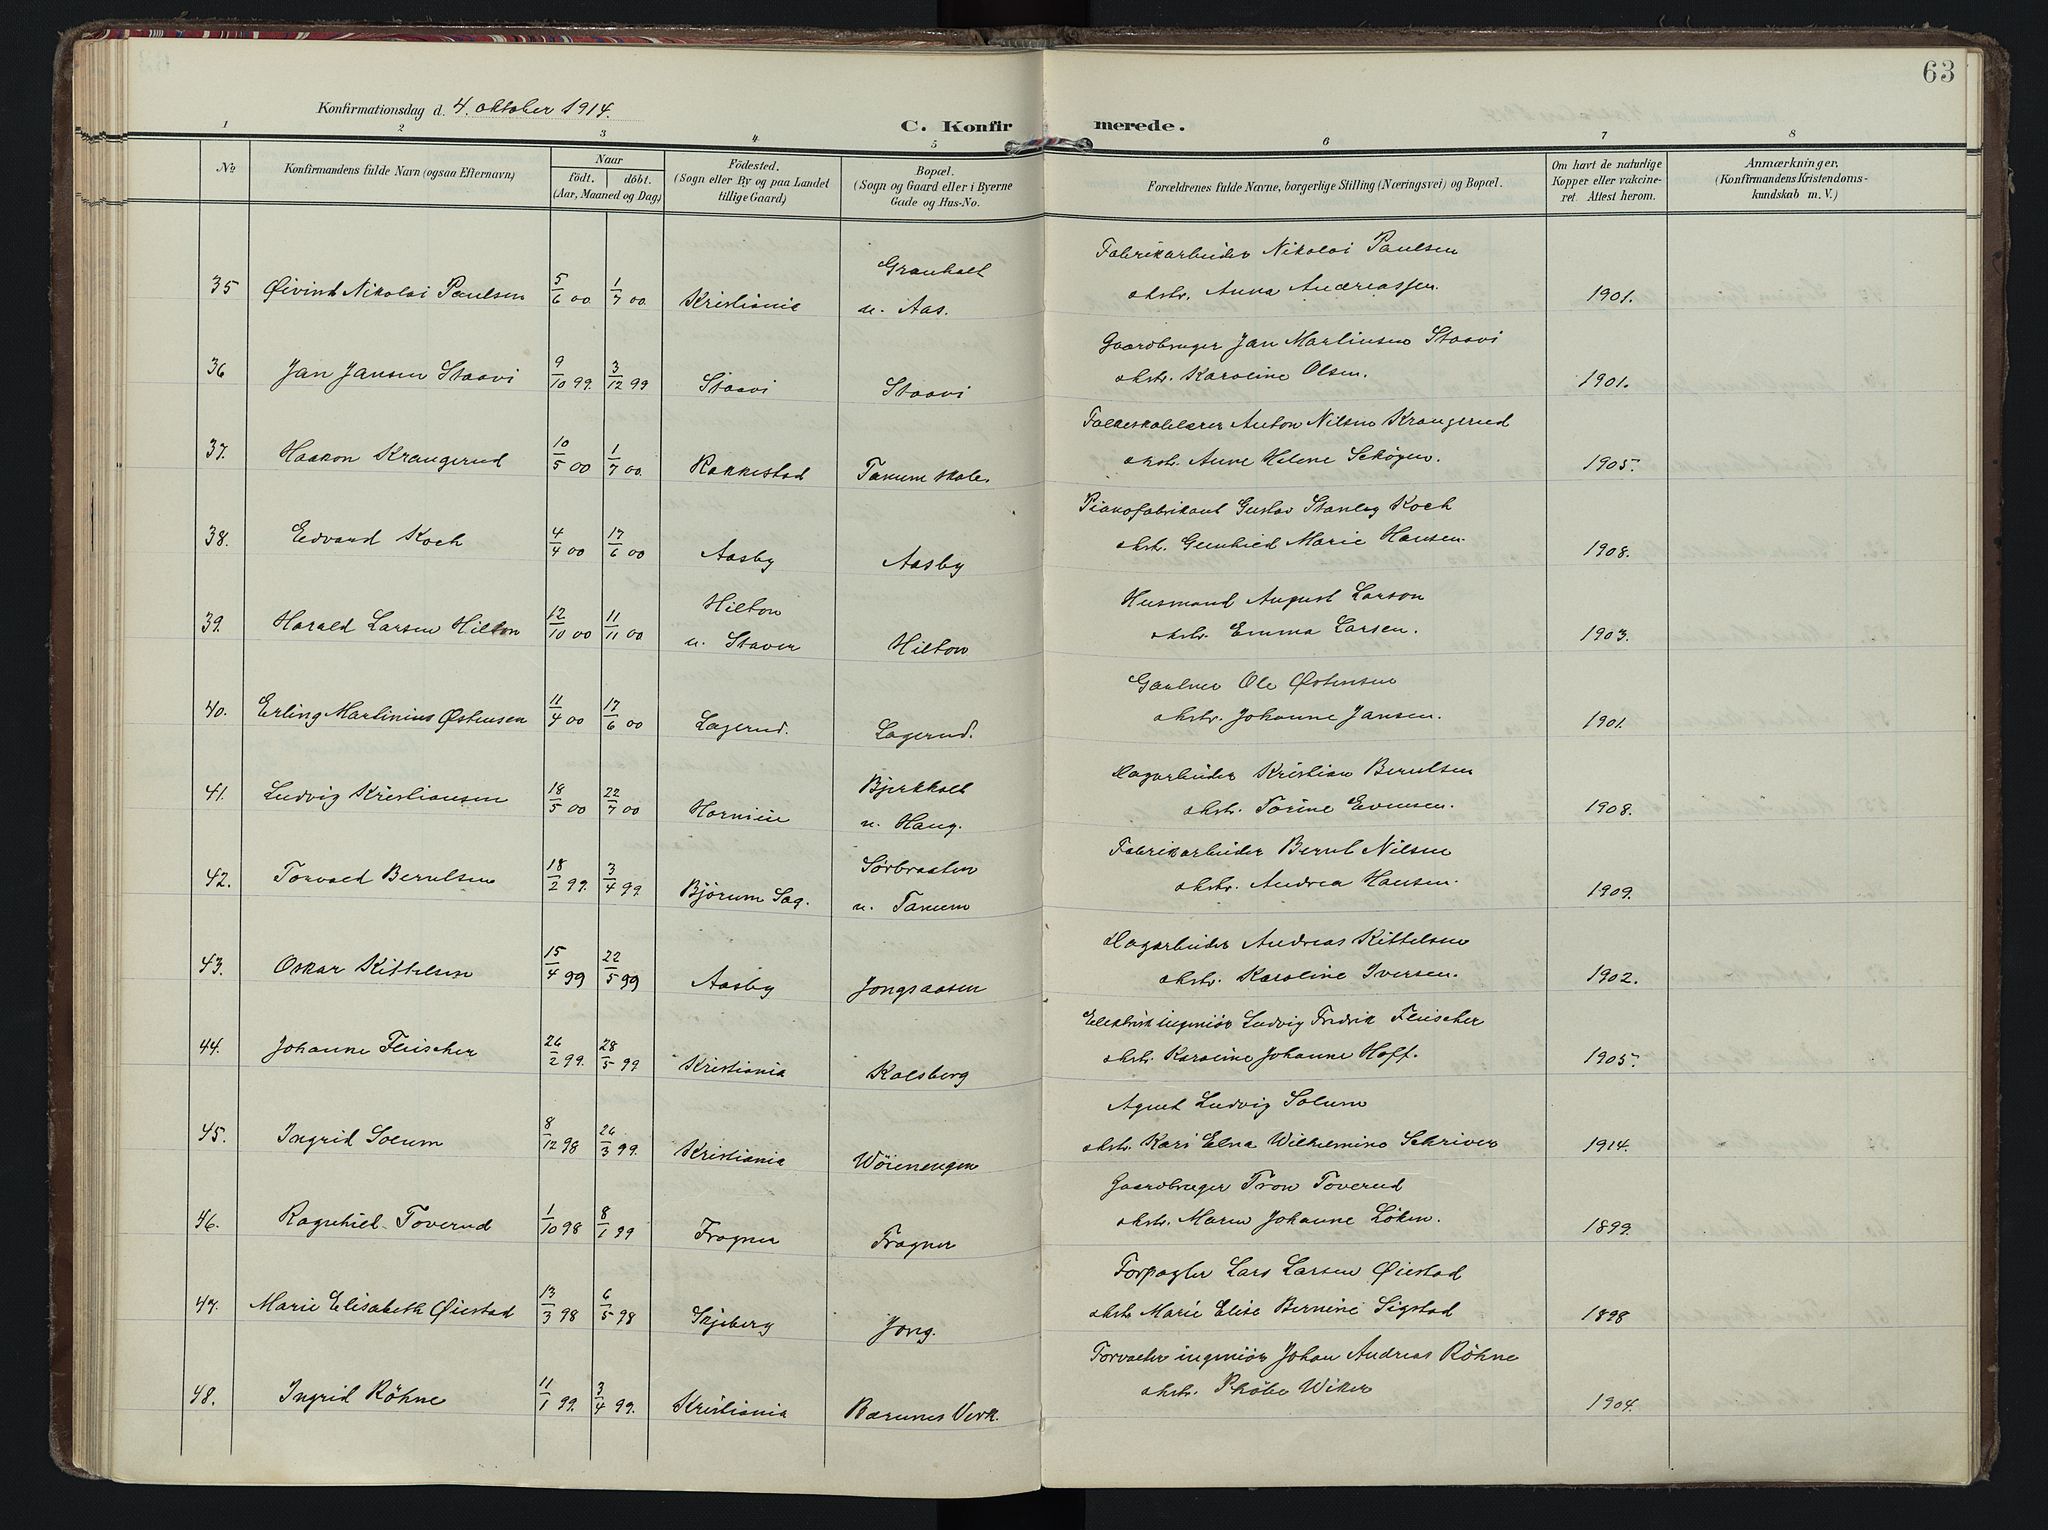 63
Konfirmationsdag d. 4. oktober 1914.
C. Konfirmerede.
1 2 3 4 5 6 7 8
No
Konfirmandens fulde Navn (ogsaa Efternavn)
Naar
født. døbt.
(Aar, Maaned og Dag)
Födested.
(Sogn eller By og paa Landet
tillige Gaard)
Bopæl.
(Sogn og Gaard eller i Byerne
Gade og Hus-No.
Forældrenes fulde Navne, borgerlige Stilling (Næringsvei) og Bopæl.
Om havt de naturlige
Kopper eller vakcine-
ret. Attest herom.
Anmærkninger,
(Konfirmandens Kristendoms-
kundskab m. V.)
35 Øivind Nikolai Paulsen 5/6 00 1/7 00 Kristiania Granholt
u. Aas.
Fabrikarbeider Nikolai Paulsen
ohstr. Anna Andreassen. 1901.
36 Jan Jansen Staavi 9/10 99. 3/12 99 Staavi Staavi
Gaardbruger Jan Martinsen Staavi
ohstr. Karoline Olsen. 1901.
37. Haakon Krangerud 10/5 00 1/7 00. Rakkestad Tanum skole.
Folkeskolelærer Anton Nilsen Krangerud
ohstr. Anne Helene Schøgen. 1905.
38. Edvard Koch 4/4 00 17/6 00 Aasby Aasby
Pianofabrikant Gustav Stanley Koch
ohstr. Gunhild Marie Hansen. 1908.
39. Harald Larsen Hilton 12/10 00 11/11 00 Hilton
u. Staver Hilton
Husmand August Larson
ohstr. Emma Larsen. 1903.
40. Erling Martinius Østensen 11/4 00 17/6 00 Lagerud. Lagerud.
Gartner Ole Østensen
ohstr. Johanne Jansen. 1901.
41. Ludvig Kristiansen 18/5 00 22/7 00 Hornien Bjerkholt
u. Haug.
Dagarbeider Kristian Berntsen
ohstr. Torine Evensen. 1908.
42. Torvald Berntsen 18/2 99. 3/4 99. Bjørum Sag. Sørbraaten
u. Tanum
Fabrikarbeider Bernt Nilsen
ohstr. Andrea Hansen. 1909.
43. Oskar Kittelsen 15/4 99 22/5 99 Aasby Jongsaasen
Dagarbeider Andreas Kittelsen
ohstr. Karoline Iversen. 1902.
44. Johanne Fleischer 26/2 99. 28/5 99 Kristiania Kolsberg
Elektrisk ingeniør Ludvig Fredrik Fleischer
ohstr. Karoline Johanne Hoff. 1905.
45. Ingrid Solum 8/12 98 26/3 99. Kristiania Wøienengen
Agent Ludvig Solum
ohstr. Kari Elna Wilhelmine Schriver 1914.
46. Ragnhild Toverud 1/10 98 8/1 99 Frogner Frogner
Gaardbruger Tron Toverud
ohstr. Maren Johanne Løken. 1899.
47. Marie Elisabeth Øiestad 13/3 98 6/5 98 Skjeberg Jong.
Forpagter Lars Larsen Øiestad
ohstr. Marie Elise Bernine Sigstad 1898
48. Ingrid Röhne 11/1 99. 3/4 99. Kristiania Bærums Verk.
Forvalter ingeniør Johan Andreas Röhne
ohstr. Phöbe Wiker 1904.